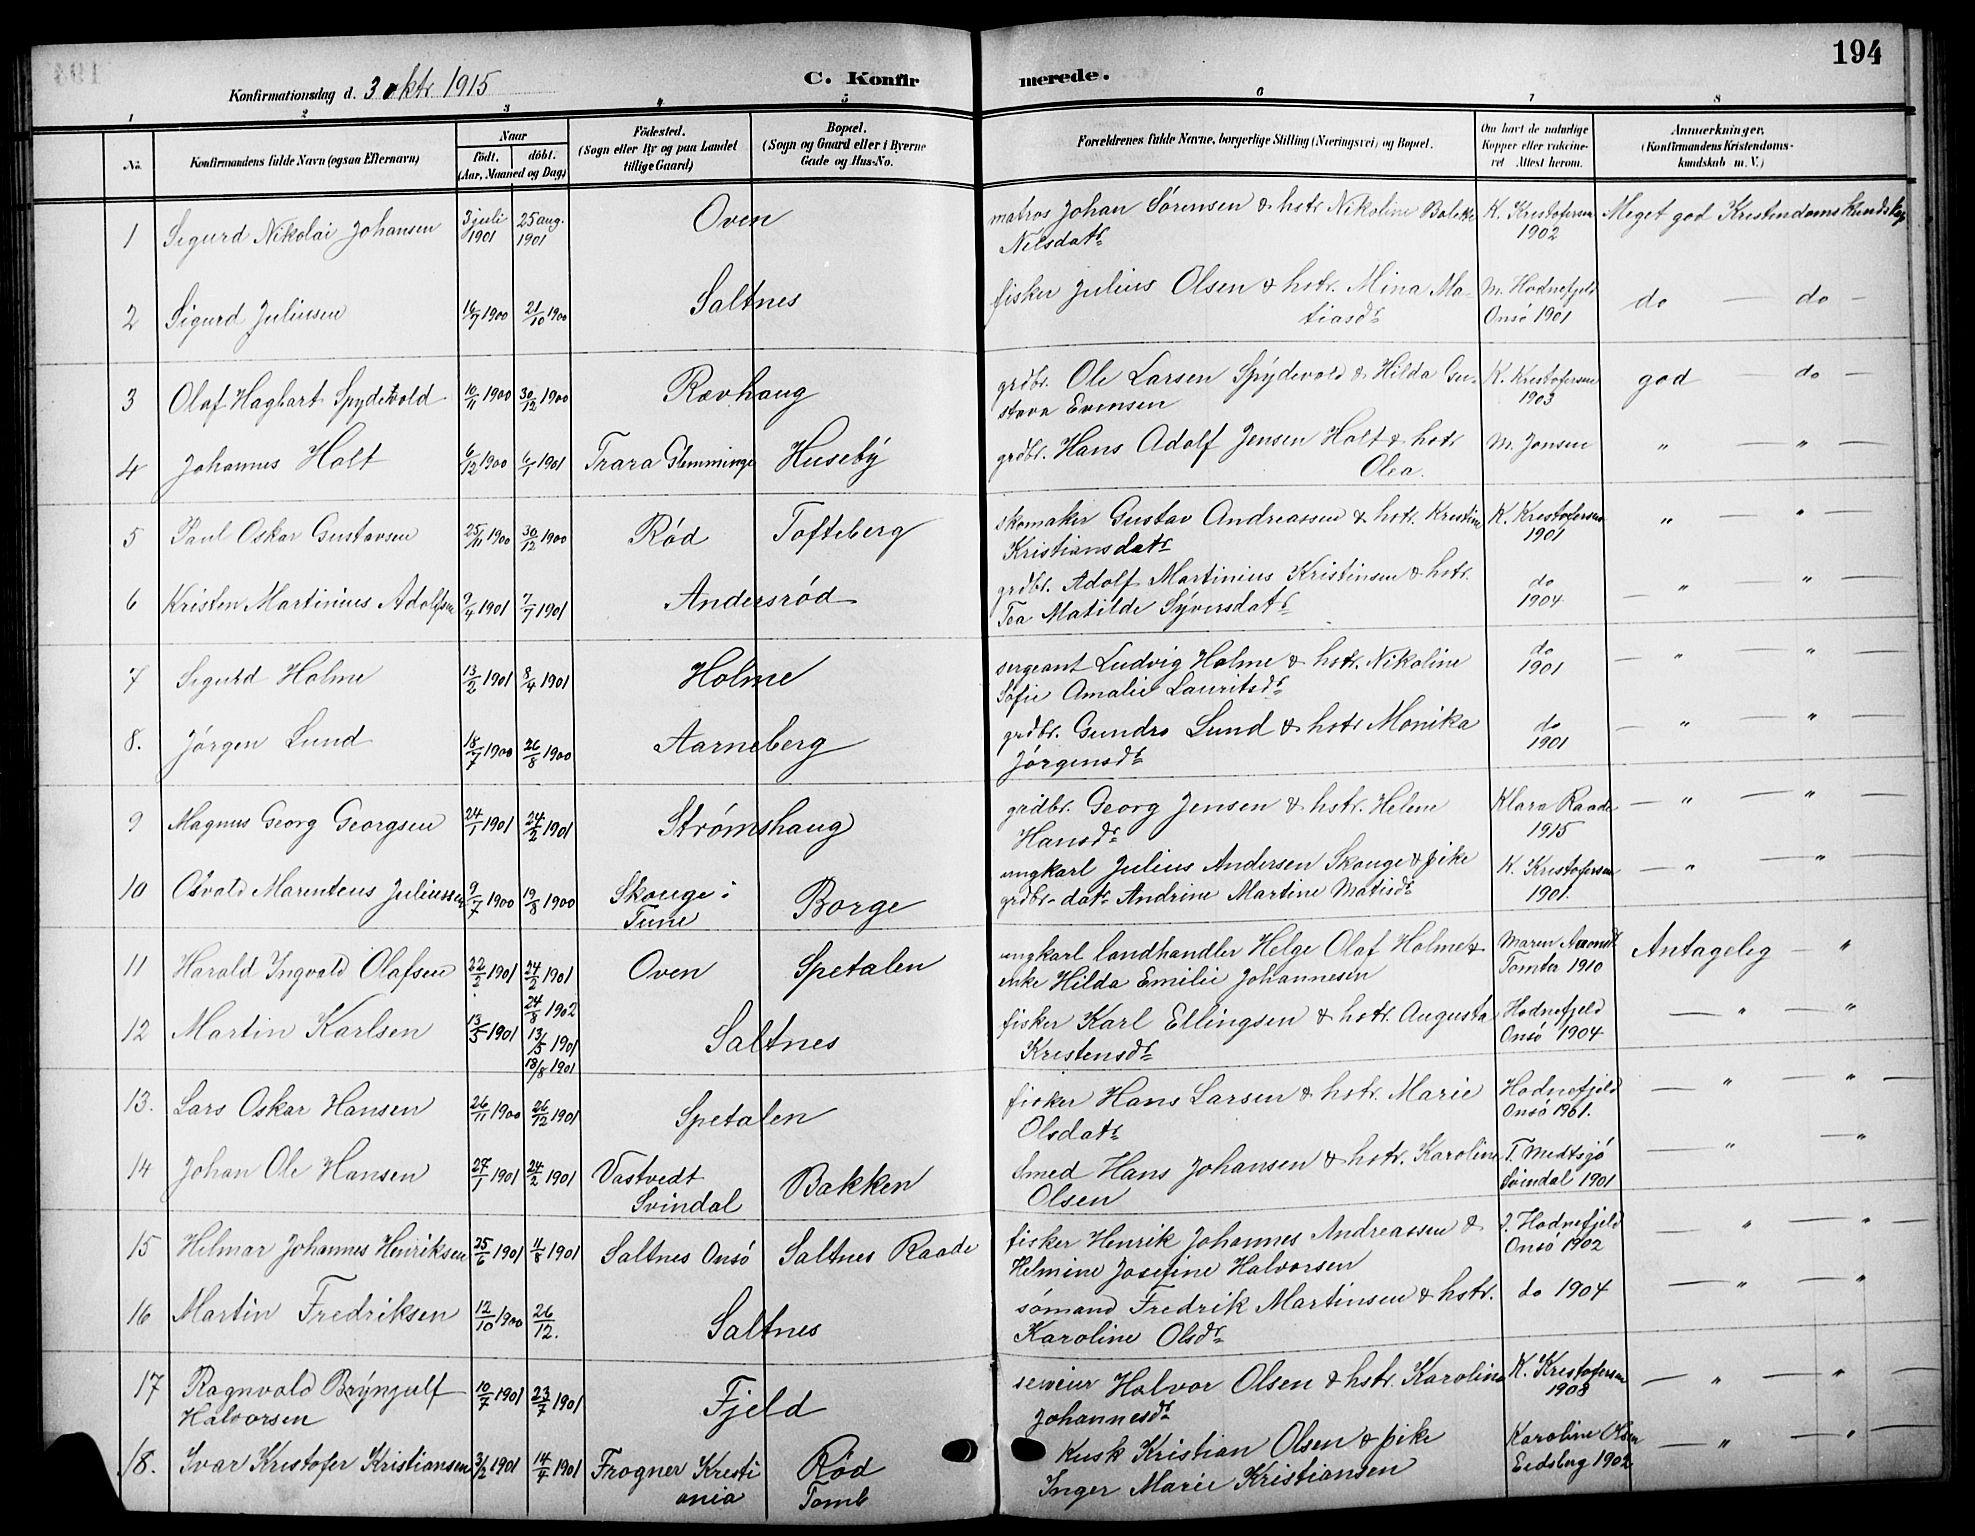 194
Konfirmationsdag d. 3 oktr. 1915
C. Konfirmerede.
1 2 3 4 5 6 7 8
No.
Konfirmandens fulde Navn (ogsaa Efternavn)
Naar
födt. döbt.
(Aar, Maaned og Dag)
Födested.
(Sogn eller By og paa Landet
tillige Gaard)
Bopæl.
(Sogn og Gaard eller i Byerne
Gade og Hus-No.
Forældrenes fulde Navne, borgerlige Stilling (Næringsvei) og Bopæl.
Om havt de naturlige
Kopper eller vakcine-
ret Attest herom.
Anmærkninger.
(Konfirmandens Kristendoms-
kundskab m. V.)
1 Sigurd Nikolai Johansen 3 juli 1901 25 aug. 1901 Oven matros Johan Sørensen & hstr Nikoline Bolette K. Kristofersen Meget god Kristendomskundskap
Nilsdatr 1902
2 Sigurd Juliussen 16/7 1900 21/10 1900 Saltnes fisker Julius Olsen & hstr. Mina Ma- M. Hodnefjeld do — do —
tiasdr Onsö 1901
3 Olaf Hagbart Spydevold 10/11 1900 30/12 1900 Rævhaug grdbr. Ole Larsen Spydevold & Hilda Gu- K. Kristofersen god — do —
stava Evensen 1903
4 Johannes Holt 6/12 1900 6/1 1901 Trara Glemminge Huseby grdbr. Hans Adolf Jensen Holt & hstr M. Jonsen " — " —
Olea.
5 Paul Oskar Gustavsen 25/11 1900 30/12 1900 Rød Tofteberg skomaker Gustav Andreassen & hstr. Kristine K. Kristofersen " — " —
Kristiansdatr 1901
6 Kristen Martinius Adolfsen 9/4 1901 7/7 1901 Andersrød grdbr. Adolf Martinius Kristinsen & hstr. do — " " —
Tea Matilde Syversdatr 1904
7 Sigurd Holme 13/2 1901 8/4 1901 Holme sergeant Ludvig Holme & hstr. Nikoline do — " — " —
Sofie Amalie Lauritsdr 1901
8. Jørgen Lund 18/7 1900 26/8 1900 Aarneberg grdbr. Gundro Lund & hstr Monika do — " " —
Jørgensdr 1901
9 Magnus Georg Georgsen 24/1 1901 24/2 1901 Strømshaug grdbr. Georg Jensen & hstr. Helene Klara Raade — " — " —
Hansdr 1915
10 Osvald Marenteus Juliussen 9/7 1900 19/8 1900 Skouge i Borge ungkarl Julius Andersen Skouge & pike K. Kristofersen — " — "
Tune grdbr.-datr Andrine Martine Matisdr 1901.
11 Harald Ingvald Olafsen 22/2 1901 24/2 1901 Oven Spetalen ungkarl landhandler Helge Olaf Holme & Maren Antagelig — "
24/8 1902 enke Hilda Emilie Johannesen Tomter 1910
12 Martin Karlsen 13/5 1901 13/5 1901 Saltnes fisker Karl Ellingsen & hstr. Augusta Hodnefjeld — " — "
18/8 1901 Kristensdr Onsö 1904
13. Lars Oskar Hansen 26/11 1900 26/12 1901 Spetalen fisker Hans Larsen & hstr. Marie Hodnefjeld — " — " —
Olsdatr Onsö 1901.
14 Johan Ole Hansen 27/1 1901 24/2 1901 Vastvedt Bakken Smed Hans Johansen & hstr. Karoline T. Medtsjö — " — "
Svindal Olsen Svindal 1901
15 Hilmar Johannes Henriksen 25/6 1901 11/8 1901 Saltnes Onsö Saltnes Raade fisker Henrik Johannes Andreassen & Hodnefjeld — " — " —
Helmine Josefine Halvorsen Onsö 1902
16 Martin Fredriksen 12/10 1900 26/12. Saltnes sømand Fredrik Martinsen & hstr. do 1904 — " — "
Karoline Olsdr
17 Ragnvald Brynjulf 10/7 1901 23/7 1901 Fjeld Halvor Olsen & hstr. Karoline K. Kristofersen — " — " —
Halvorsen Johannesdr 1908
18. Ivar Kristofer Kristiansen 3/2 1901 14/4 1901 Frogner Kristi Rød Kusk Kristian Olsen & pike Karoline Olsen — " — " —
ania Tomb Inger Marie Kristiansen Eidsberg 1902